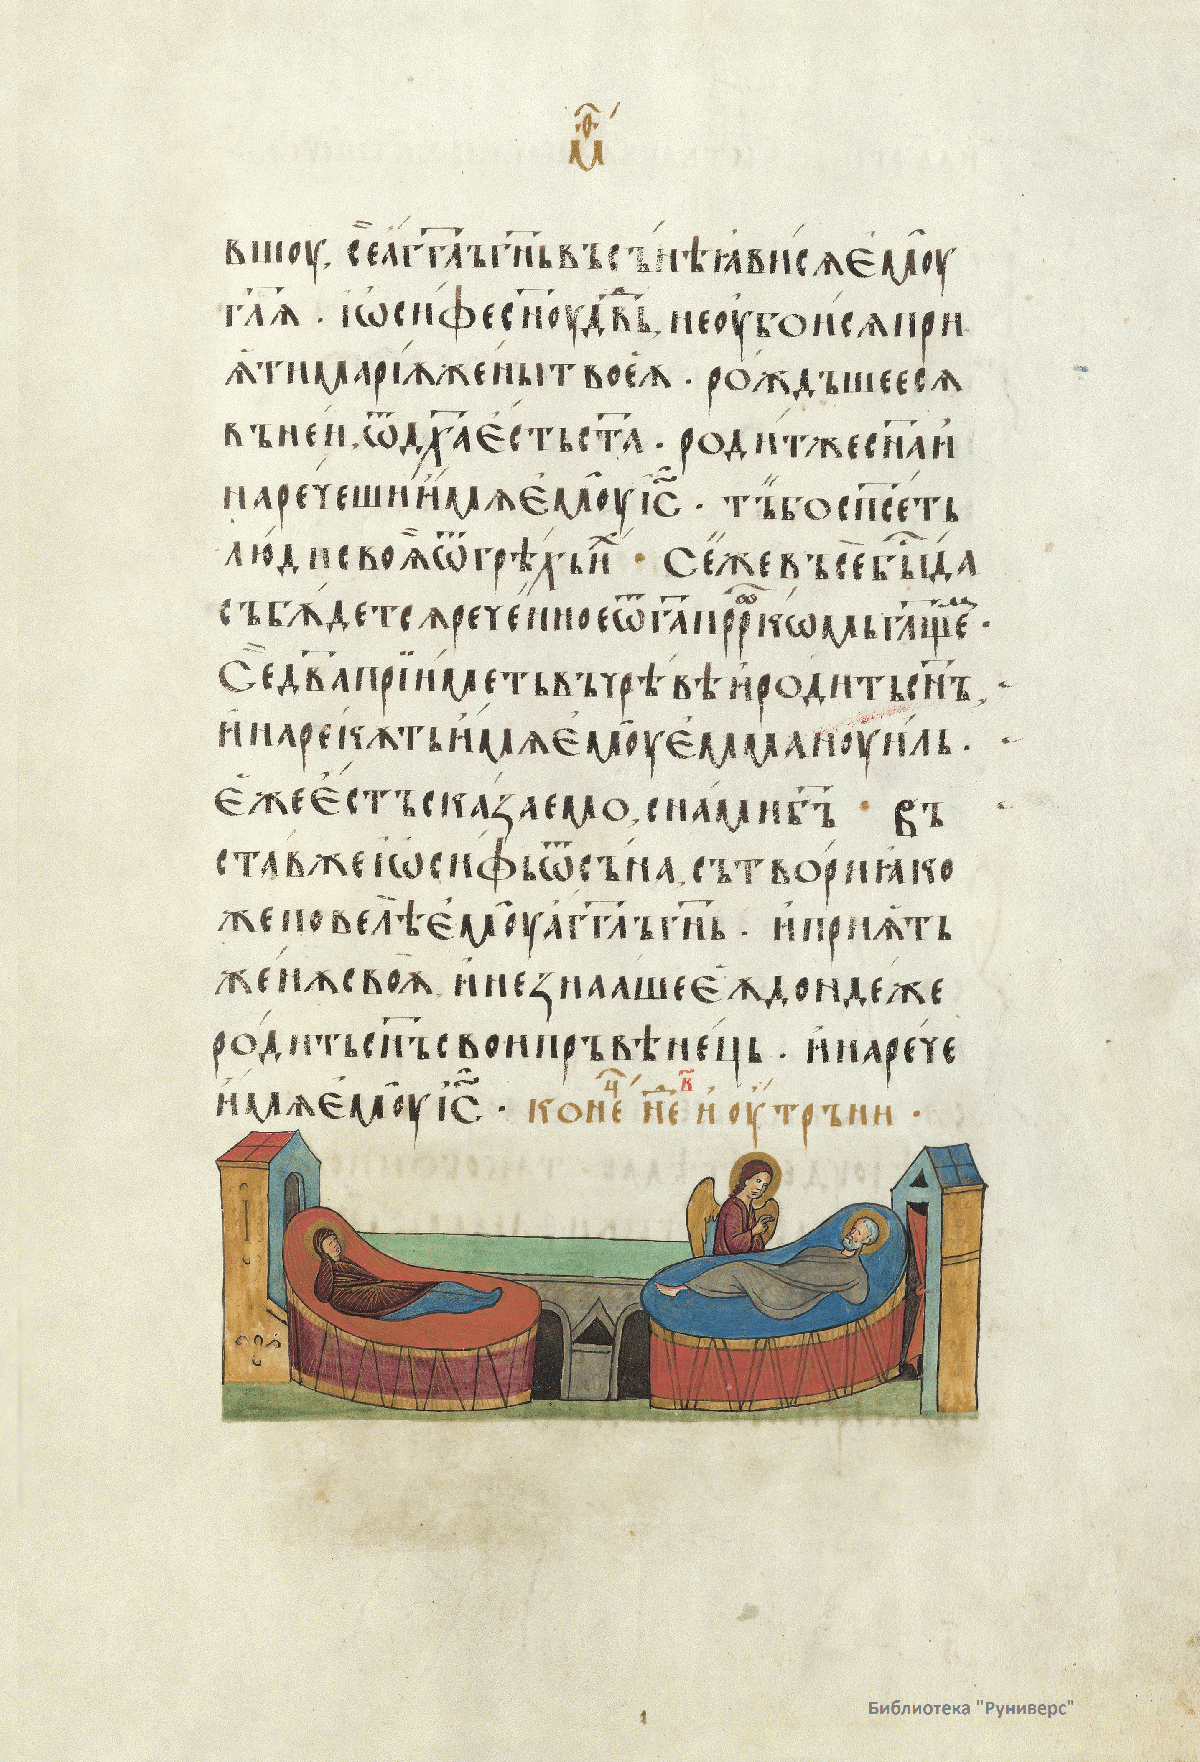 м҃ѳ
вшоу, се а҆гг҃лъ гн҃ь въ сънѣ ꙗ҆ви сѧ є҆моу
гл҃ѧ · і҆ѡсифе сн҃оу дв҃дь, не оу҆бои сѧ при
ѧ҆ти марїѫ жены твоеѧ҆ · рождъшее сѧ
въ неи, ѿ дх҃а є҆сть ст҃а · родит же сн҃а и҆
наречеши и҆мѧ є҆моу і҆с҃ · тъ бо сп҃сеть
люди своѧ҆ ѿ грѣхь и҆х · Се же въсе бы да
събѫдет сѧ реченное ѿ г҃а пррⷪ҇кѡмь гл҃щемь ·
Се дв҃а прїиметь въ чрѣвѣ и҆ родить сн҃ъ,
и҆ нарекѫть и҆мѧ є҆моу є҆мманоуиль ·
є҆же є҆стъ сказаемо, с нами б҃ъ · въ
став же і҆ѡсифь ѿ съна, сътвори ꙗ҆ко
же повелѣ є҆моу а҆гг҃лъ гн҃ь · и҆ приѧ҆ть
женѫ своѫ҆, и҆ не знаашее є҆ѧ дондеже
родить сн҃ъ свои пръвѣнець · и҆ нарече
и҆мѧ є҆моу і҆с҃ · конеⷰ҇ не в҃ и҆ оу҆тръни ·
Библиотека "Руниверс"